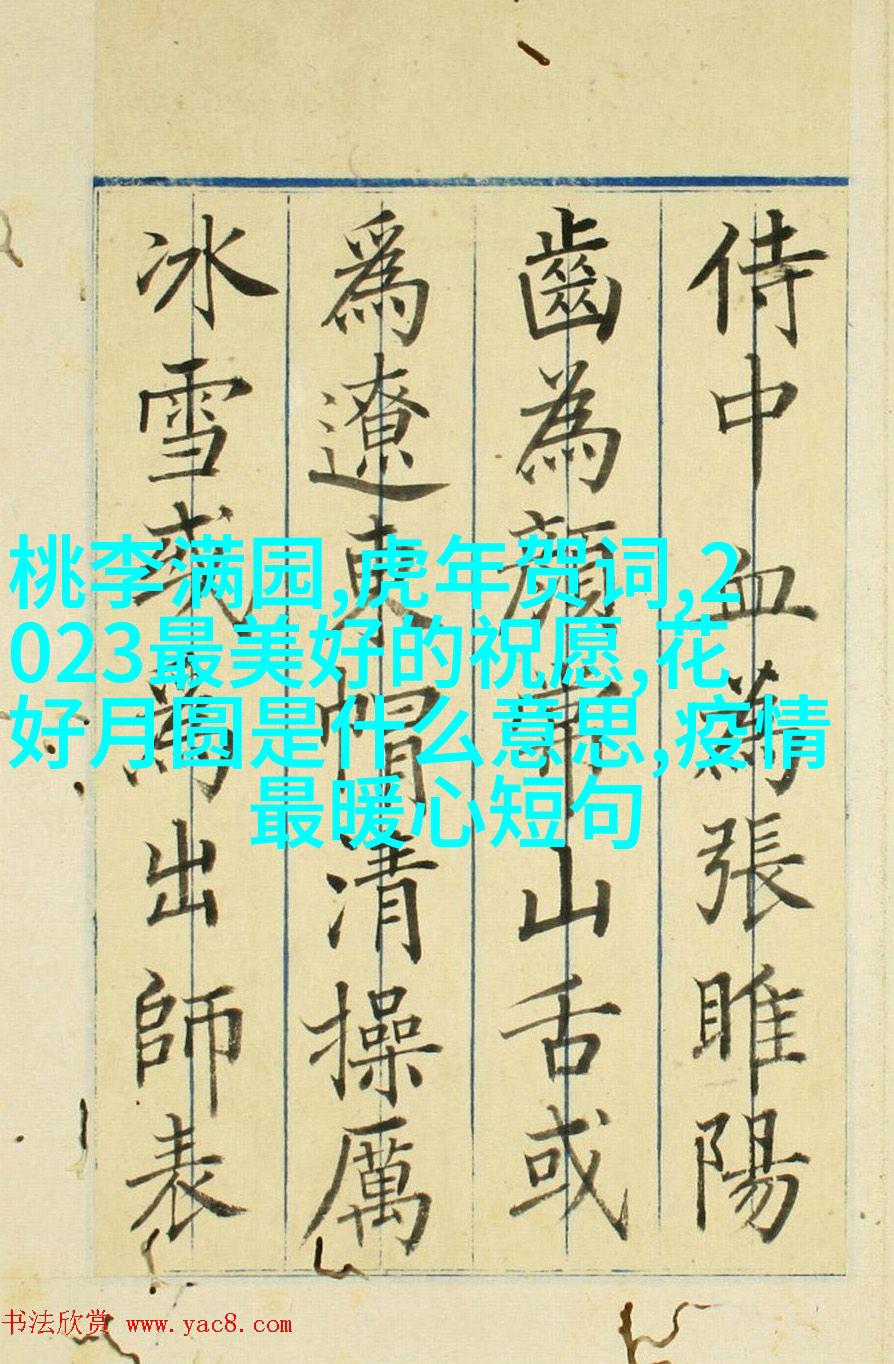 侍中血為張睢陽
齒為顏常山舌或
爲遼東帽清操厲
冰雪或為出師表
桃李满园,虎年贺词,2
023最美好的祝愿,花
好月圆是什么意思,疫情
最暖心短句
书法欣赏 www.yac8.com